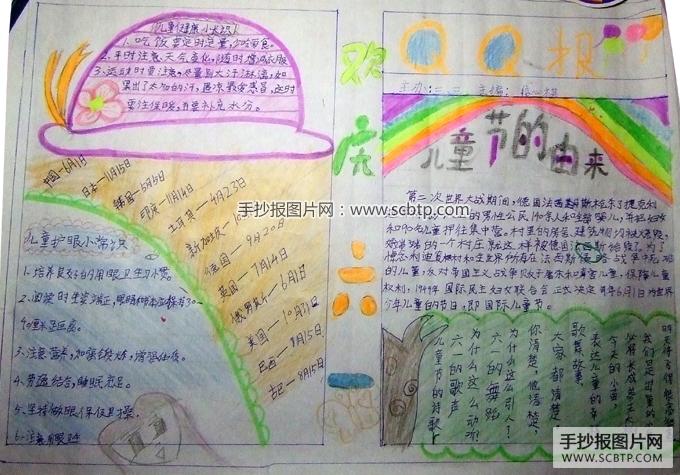 儿童健康小常识
1、吃饭要定时定量,少吃零食。
2、平时注意天气变化,随时增减衣服
3、运动时要注意,尽量别大汗淋漓,如
果出了太多的汗,
要注保暖,再要补充水分。
中国-6月1日
日本-11月15日
韩国-5月5日
印度-11月14日
土耳其-4月23日
新加坡-10
德国-9月20日
英国-7月14日
俄罗斯-6月1日
美国-10月31日
巴西-8月15日
古巴-8月15日
儿童护眼小常识
1、培养良好的用眼卫生习惯。
2、阅读时坐姿端正,眼睛和书本应保持30-
40厘米距离。
3、注意营养,加强锻炼,增强体质。
4、劳逸结合,睡眠充足。
5、坚持做眼保健操。
6、注意用眼
欢
庆
六
一
QQ报
主办:三、二 主编:
儿童节的由来
第二次世界大战期间,德国法西斯
的男性公民140多人和
和90名儿童押往集中营。村里的房舍、建筑物
的一个村庄就这样被德国法西斯给毁了。为了
悼念利迪
的儿童,反对帝国主义战争贩子屠杀和毒害儿童,保障儿童
权利,1949年国际民主妇女联合会正式决定每年6月1日为世界
少年儿童的节日,即国际儿童节。
明天
我们是祖国的
今天的小苗,
必将长成参天
表达儿童的
歌舞故事,
大家都清楚
你清楚,他清楚,
为什么这么引人?
六一的舞蹈
为什么这么动听?
六一的歌声
儿童节的诗歌
手抄报图片网-www.scbtp.com
手抄报图片网
SCBTP.COM